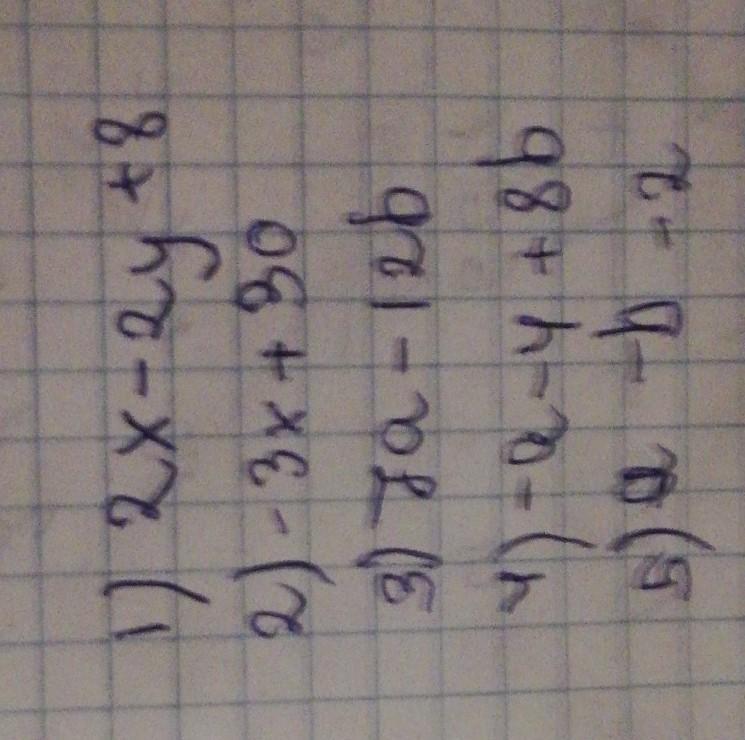 1) 2x - 2y + 8
2) - 3x + 30
3) 7a - 12b
4) - a - 4 + 8b
5) a - b - 2